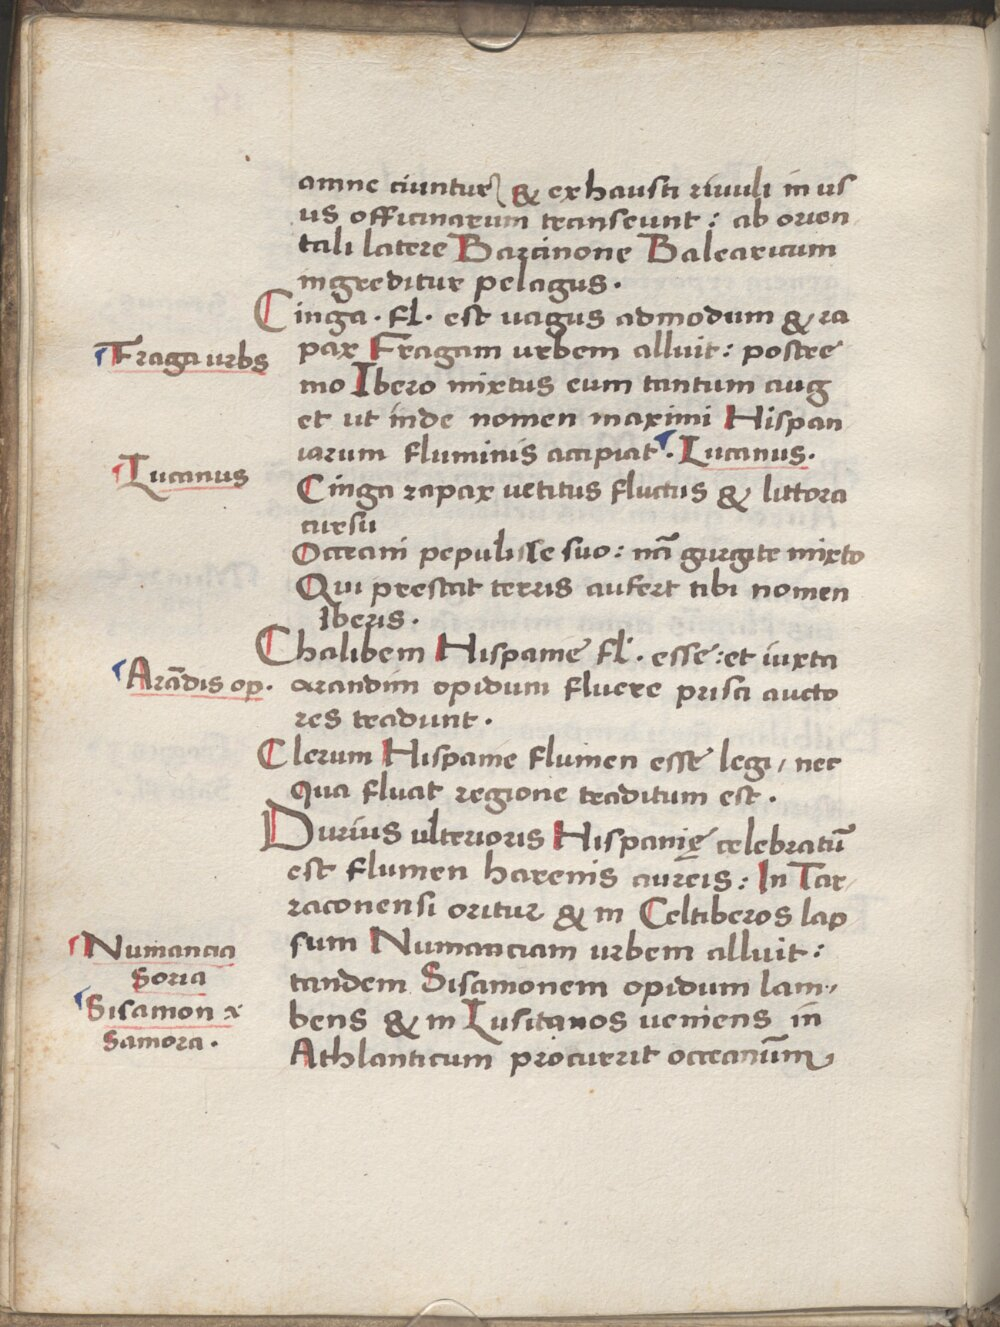 amne ciuntur & exhausti riuuli in us
us officinarum transeunt : ab orien
tali latere Barcinone Balearicum
ingreditur pelagus.
Cinga. fl. est uagus admodum & ra
Fraga urbs
pax Fragam urbem alluit : postre
mo Ibero mixtus eum tantum aug
et ut inde nomen maximi Hispan
iarum fluminis accipiat. Lucanus.
Lucanus
Cinga rapax uetitus fluctus & littora
cursu
Occeani pepulisse suo : nã gurgite mixto
Qui prestat terris aufert tibi nomen
Iberis.
Chalibem Hispanie fl. esse : et iuxta
Arãdis op.
arandim opidum fluere prisci aucto
res tradunt.
Clerum Hispanie flumen esse legi, nec
qua fluat regione traditum est.
Durius ulterioris Hispanię celebratũ
est flumen harenis aureis : In Tar
raconensi oritur & in Celtiberos lap
Numancia
sum Numanciam urbem alluit :
Soria
tandem Sisamonem opidum lam
Sisamon
bens & in Lusitanos ueniens in
Samora.
Athlanticum procurrit occeanũm